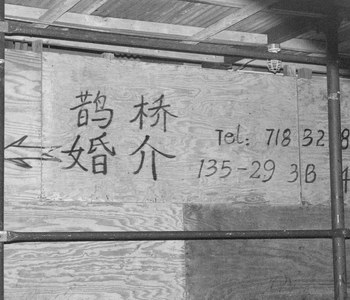 鹊桥
婚介
Tel: 718 32 8
135-29 3B 4